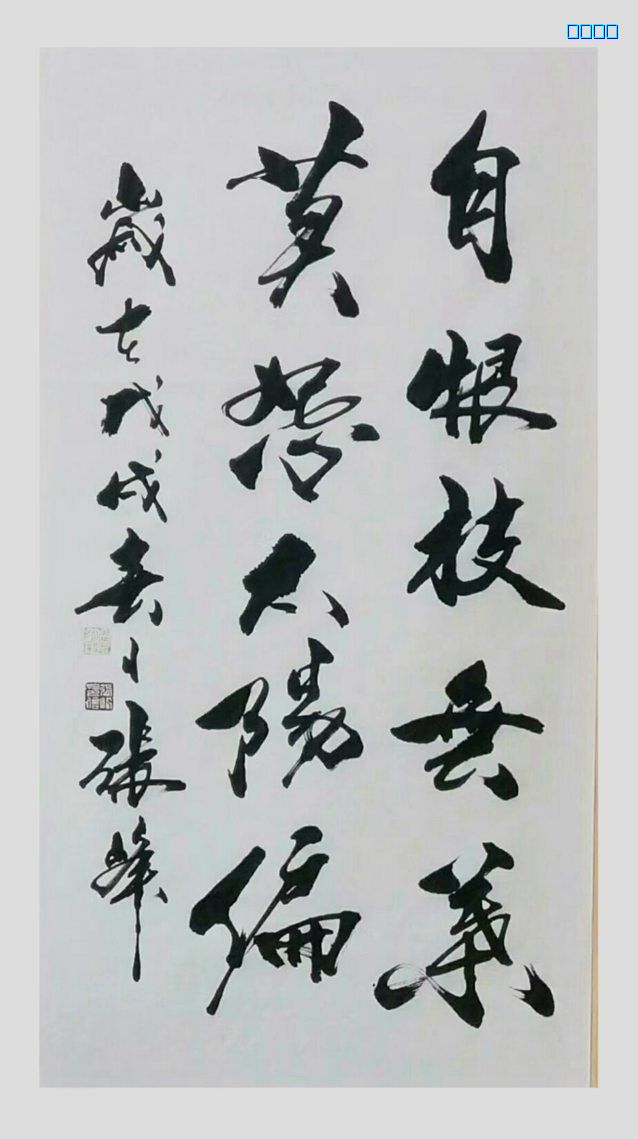 自恨枝無葉
莫怨太陽偏
歲在戊戌春月張峰